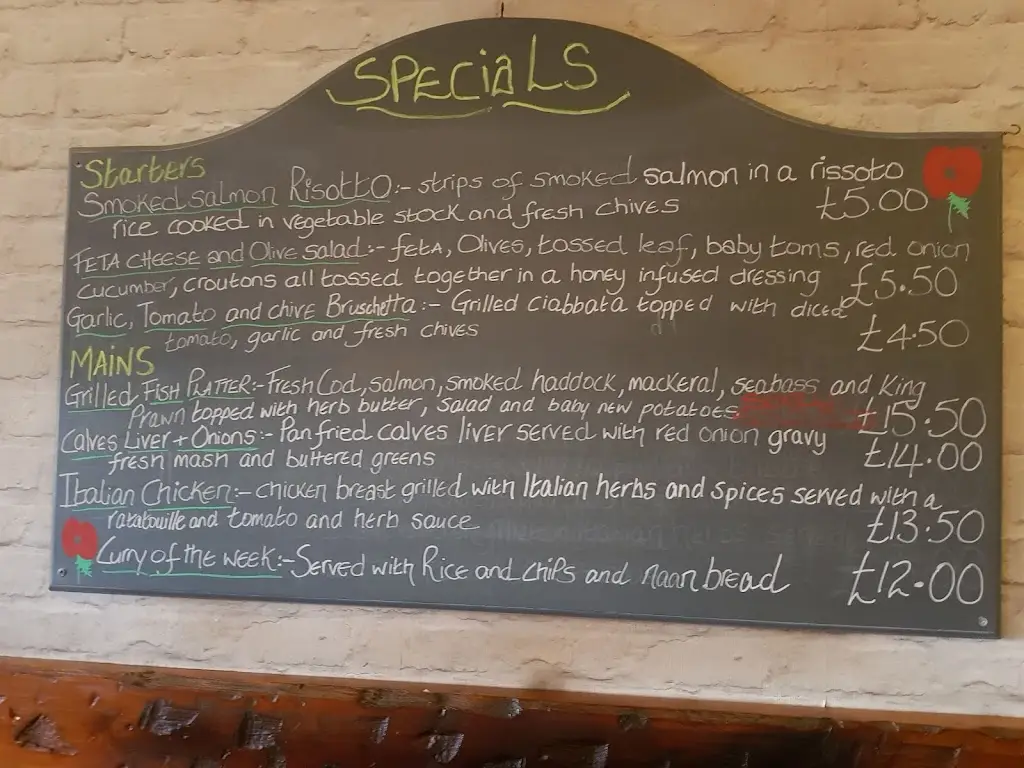 SPECiALS
Starters
Smoked salmon Risotto:- strips of smoked salmon in a rissoto
rice cooked in vegetable stock and fresh chives £5.00
FETA CHEESE and Olive salad:- feta, Olives, tossed leaf, baby toms, red onion
cucumber, croutons all tossed together in a honey infused dressing £5.50
Garlic, Tomato and chive Bruschetta:- Grilled ciabbata topped with diced
tomato, garlic and fresh chives £4.50
MAINS
Grilled Fish Platter:- Fresh Cod, salmon, smoked haddock, mackeral, seabass and King
Prawn topped with herb butter, salad and baby new potatoes £15.50
Calves Liver + Onions:- Panfried calves liver served with red onion gravy
fresh mash and buttered greens £14.00
Italian Chicken:- chicken breast grilled with Italian herbs and spices served with a
ratatouille and tomato and herb sauce £13.50
Curry of the week:- Served with Rice and chips and naan bread £12.00